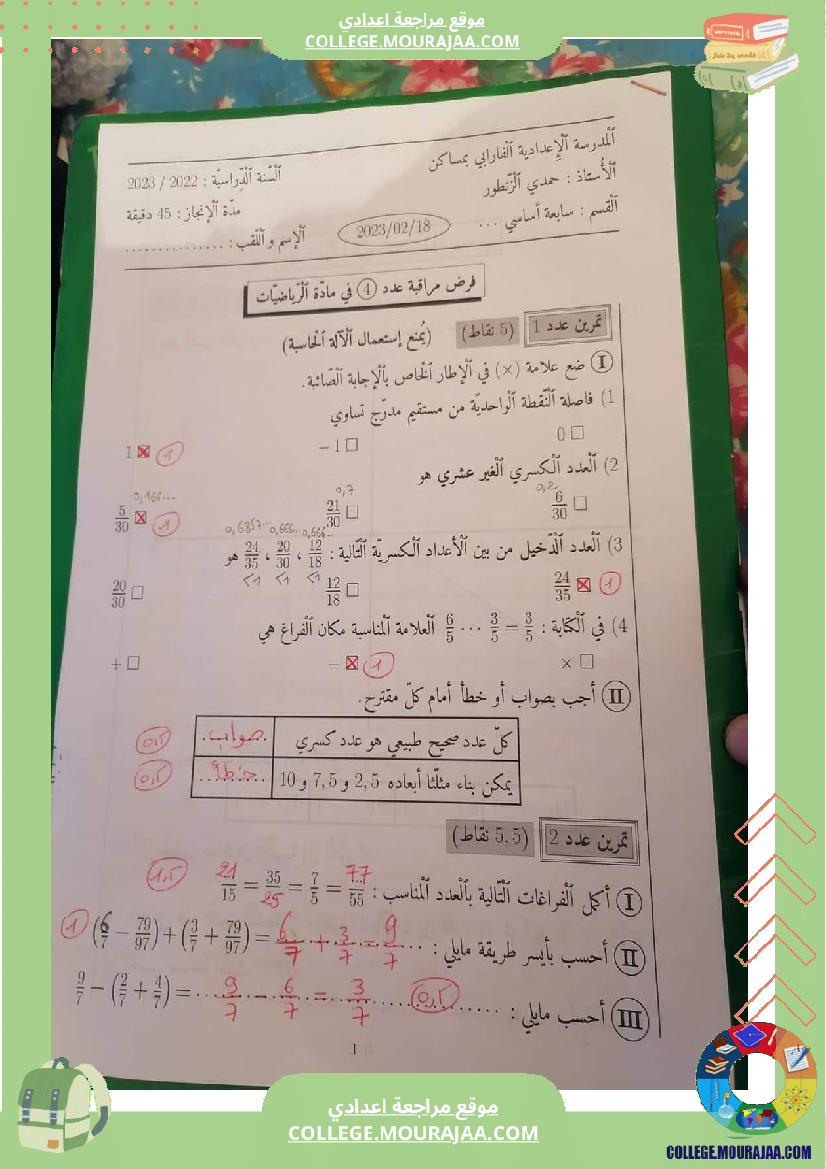 موقع مراجعة اعدادي
COLLEGE.MOURAJAA.COM
اَلْمدرسة اَلْإِعدادية اَلْفارابي بمساكن
اَلْأُستاذ : حمدي اَلزّنطور
اَلْقسم : سابعة أساسي ...
اَلسّنة اَلدّراسيّة : 2022 / 2023
مدّة اَلْإنجاز : 45 دقيقة
2023/02/18
اَلْإسم و اَللّقب : ................
فرض مراقبة عدد 4 في مادّة اَلرّياضيّات
تمرين عدد 1 (5 نقاط) (يُمنع إستعمال اَلْآلة اَلْحاسبة)
I ضع علامة (×) في اَلْإطار اَلْخاص بِاَلْإجابة اَلصّائبة.
1) فاصلة اَلنّقطة اَلْواحديّة من مستقيم مدرّج تساوي
☐ 0 ☐ −1 ☒ 1 1
2) اَلْعدد اَلْكسري اَلْغير عشري هو
0,2 0,7 0,166...
☐ 6/30 ☐ 21/30 ☒ 5/30 1
0,6857... 0,666... 0,666...
3) اَلْعدد اَلدّخيل من بين اَلْأعداد اَلْكسريّة اَلتّالية : 12/18 ، 20/30 ، 24/35 هو
<1 <1 <1
☒ 24/35 1 ☐ 12/18 ☐ 20/30
4) في اَلْكتابة : 6/5 ... 3/5 = 3/5 اَلْعلامة اَلْمناسبة مكان اَلْفراغ هي
☐ × ☒ − 1 ☐ +
II أجب بصواب أو خطأ أمام كلّ مقترح.
كلّ عدد صحيح طبيعي هو عدد كسري صواب 0,5
يمكن بناء مثلّثا أبعاده 2,5 و 7,5 و 10 خطأ 0,5
تمرين عدد 2 (5,5 نقاط)
I أكمل اَلْفراغات اَلتّالية بِاَلْعدد اَلْمناسب : 21/15 = 35/25 = 7/5 = 77/55 1,5
II أحسب بأيسر طريقة مايلي : (6/7 − 79/97) + (3/7 + 79/97) = 6/7 + 3/7 = 9/7 1
III أحسب مايلي : 9/7 − (2/7 + 4/7) = 9/7 − 6/7 = 3/7 0,5
1
موقع مراجعة اعدادي
COLLEGE.MOURAJAA.COM
COLLEGE.MOURAJAA.COM